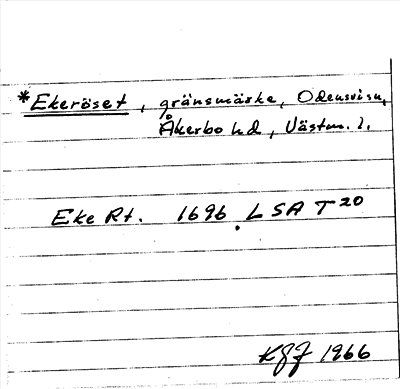 *Ekeröset, gränsmärke, Odensvi sn,
Åkerbo hd, Västm. l.
Eke Rt. 1696 LSA T 20
KGJ 1966